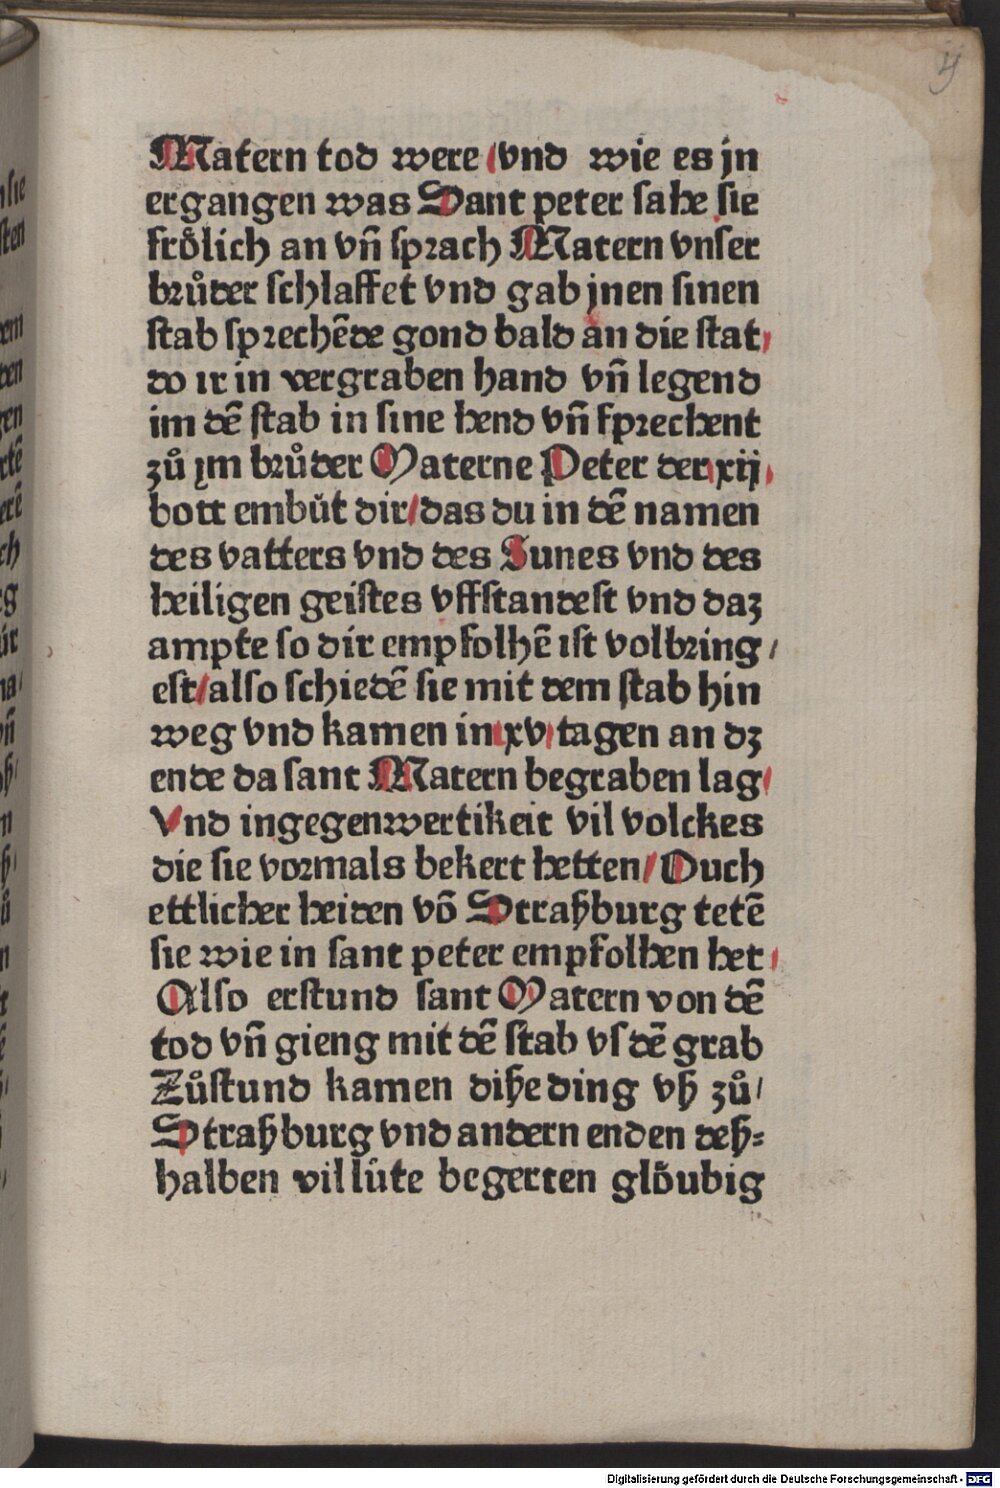 Matern tod were / vnd wie es jn
ergangen was Sant peter sahe sie
frỏlich an vn̄ sprach Matern vnser
brůder schlaffet vnd gab jnen sinen
stab sprechēde gond bald an die stat /
do ir in vergraben hand vn̄ legend
im dē stab in sine hend vn̄ sprechent
zů im brůder Materne Peter der xij
bott embút dir / das du in dē namen
des vatters vnd des Sunes vnd des
heiligen geistes vffstandest vnd daz
ampte so dir empfolhē ist volbring /
est / also schiedē sie mit dem stab hin
weg vnd kamen in xv tagen an dz
ende da sant Matern begraben lag /
Vnd in gegenwertikeit vil volckes
die sie vormals bekert hetten / Ouch
ettlicher heiden vō Straßburg tetē
sie wie in sant peter empfolhen het /
Also erstund sant Matern von dē
tod vn̄ gieng mit dē stab vs dē grab
Zůstund kamen diße ding vß zů /
Straßburg vnd andern enden deß=
halben vil lúte begerten glỏubig
Digitalisierung gefördert durch die Deutsche Forschungsgemeinschaft - DFG